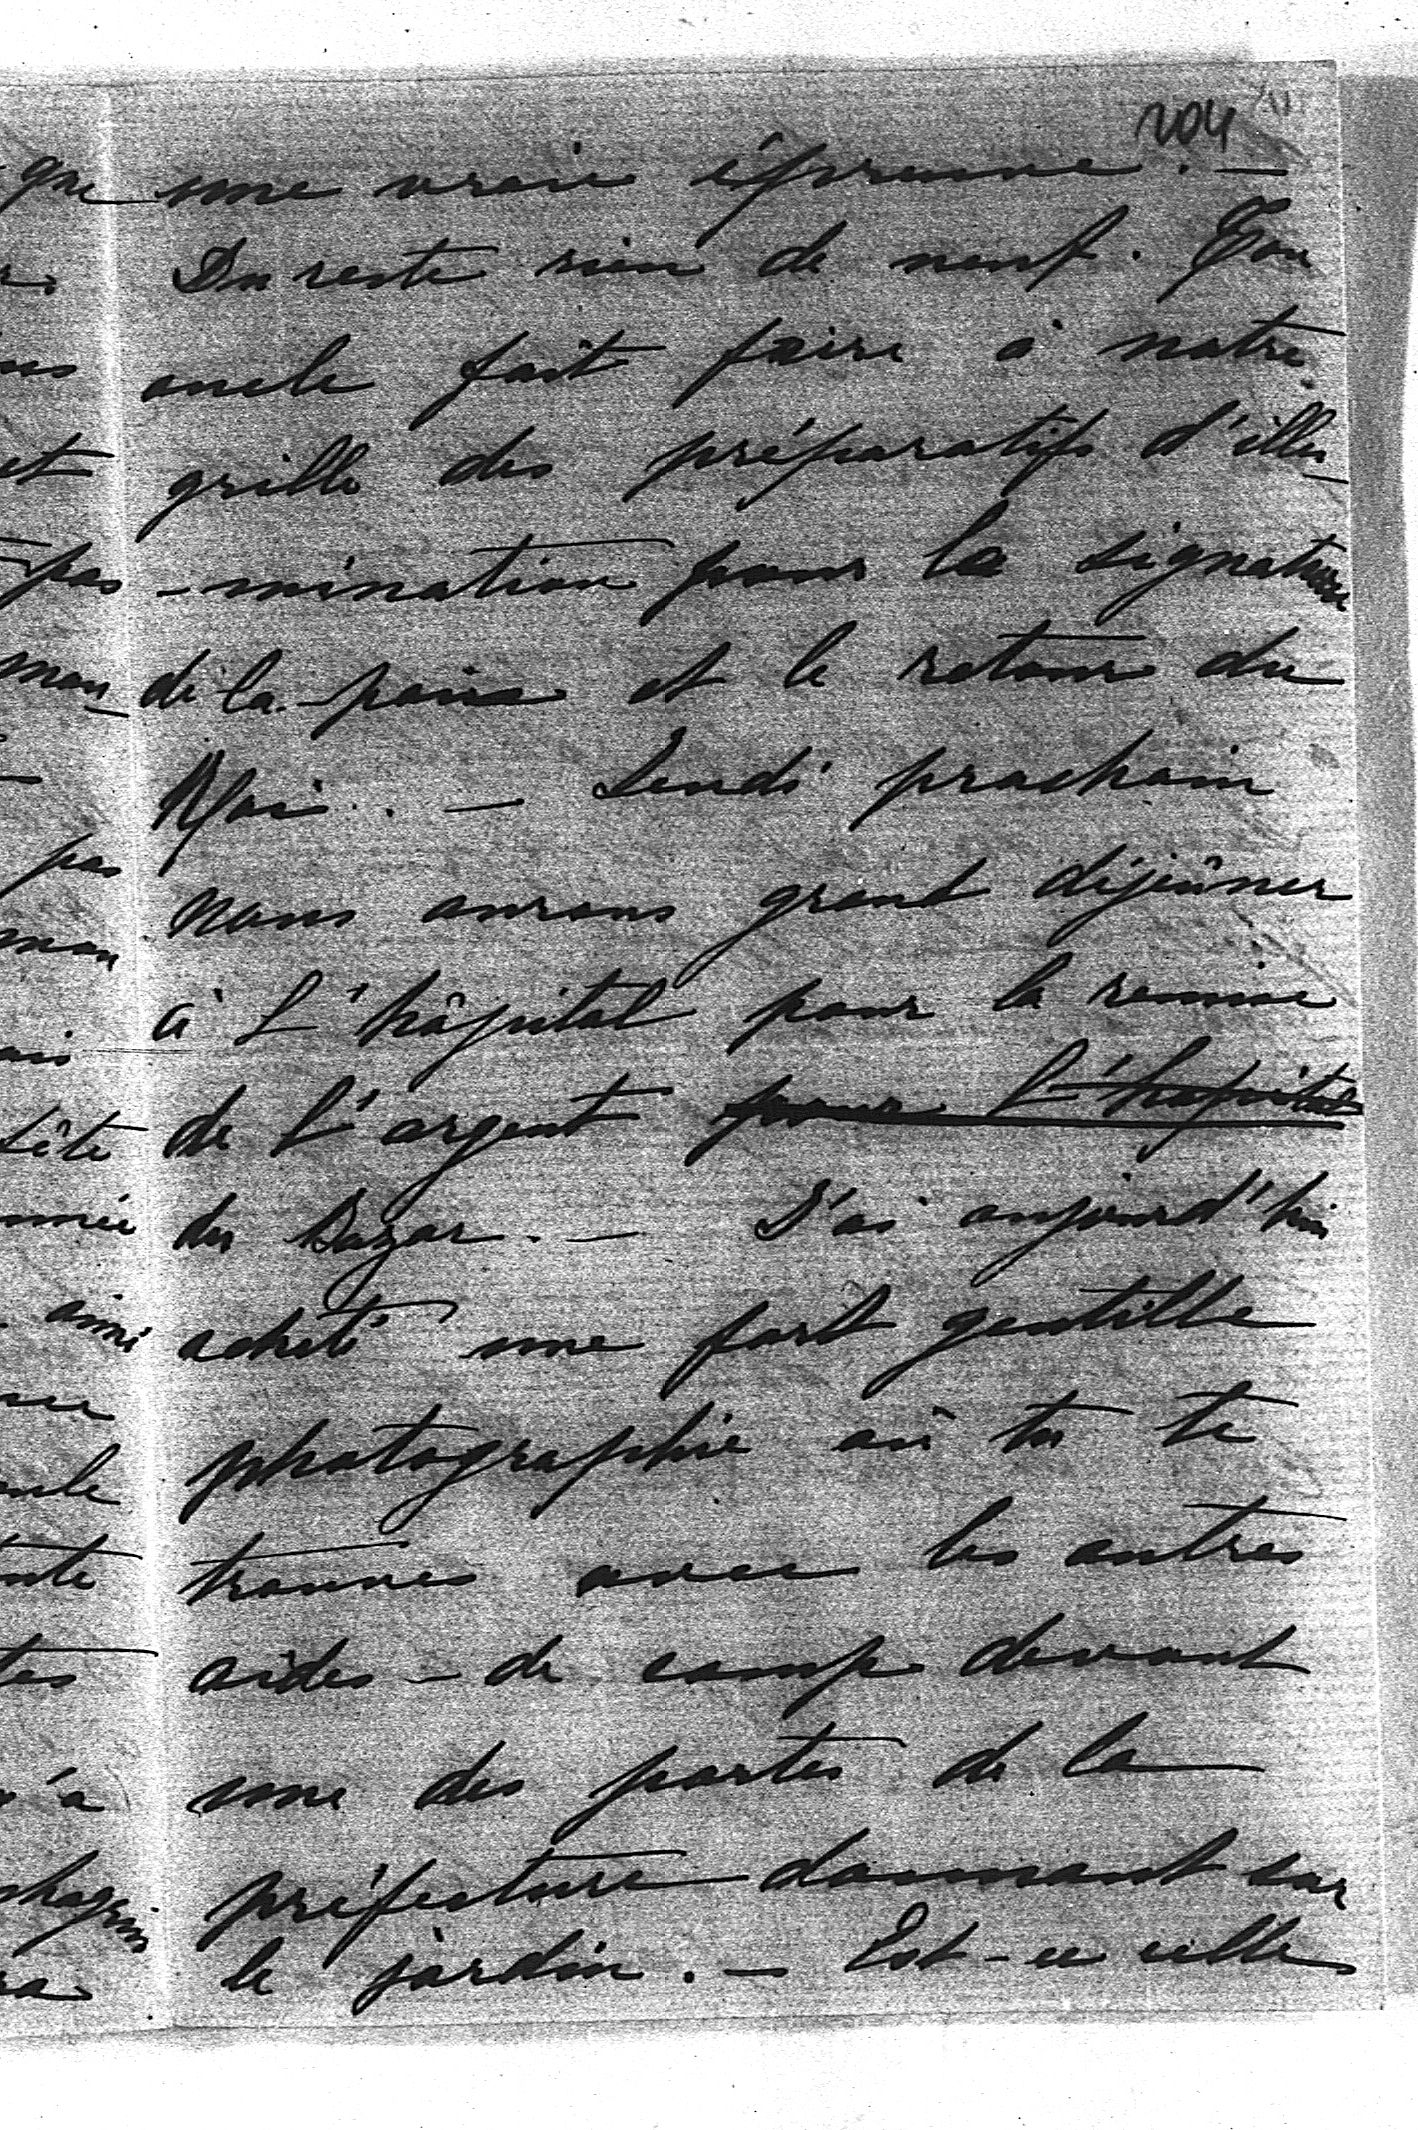 204
une vraie épreuve. —
Du reste rien de neuf. Ton
oncle fait faire à notre
grille des préparatifs d'illu-
-mination pour la signature
de la paix et le retour du
Roi. — Lundi prochain
nous aurons grand déjeûner
à l'hôpital pour la remise
de l'argent pour l'hopital
du Bazar. — J'ai aujourd'hui
acheté une fort gentille
photographie où tu te
trouves avec les autres
aides-de camp devant
une des portes de la
préfecture donnant sur
le jardin. — Est-ce celle